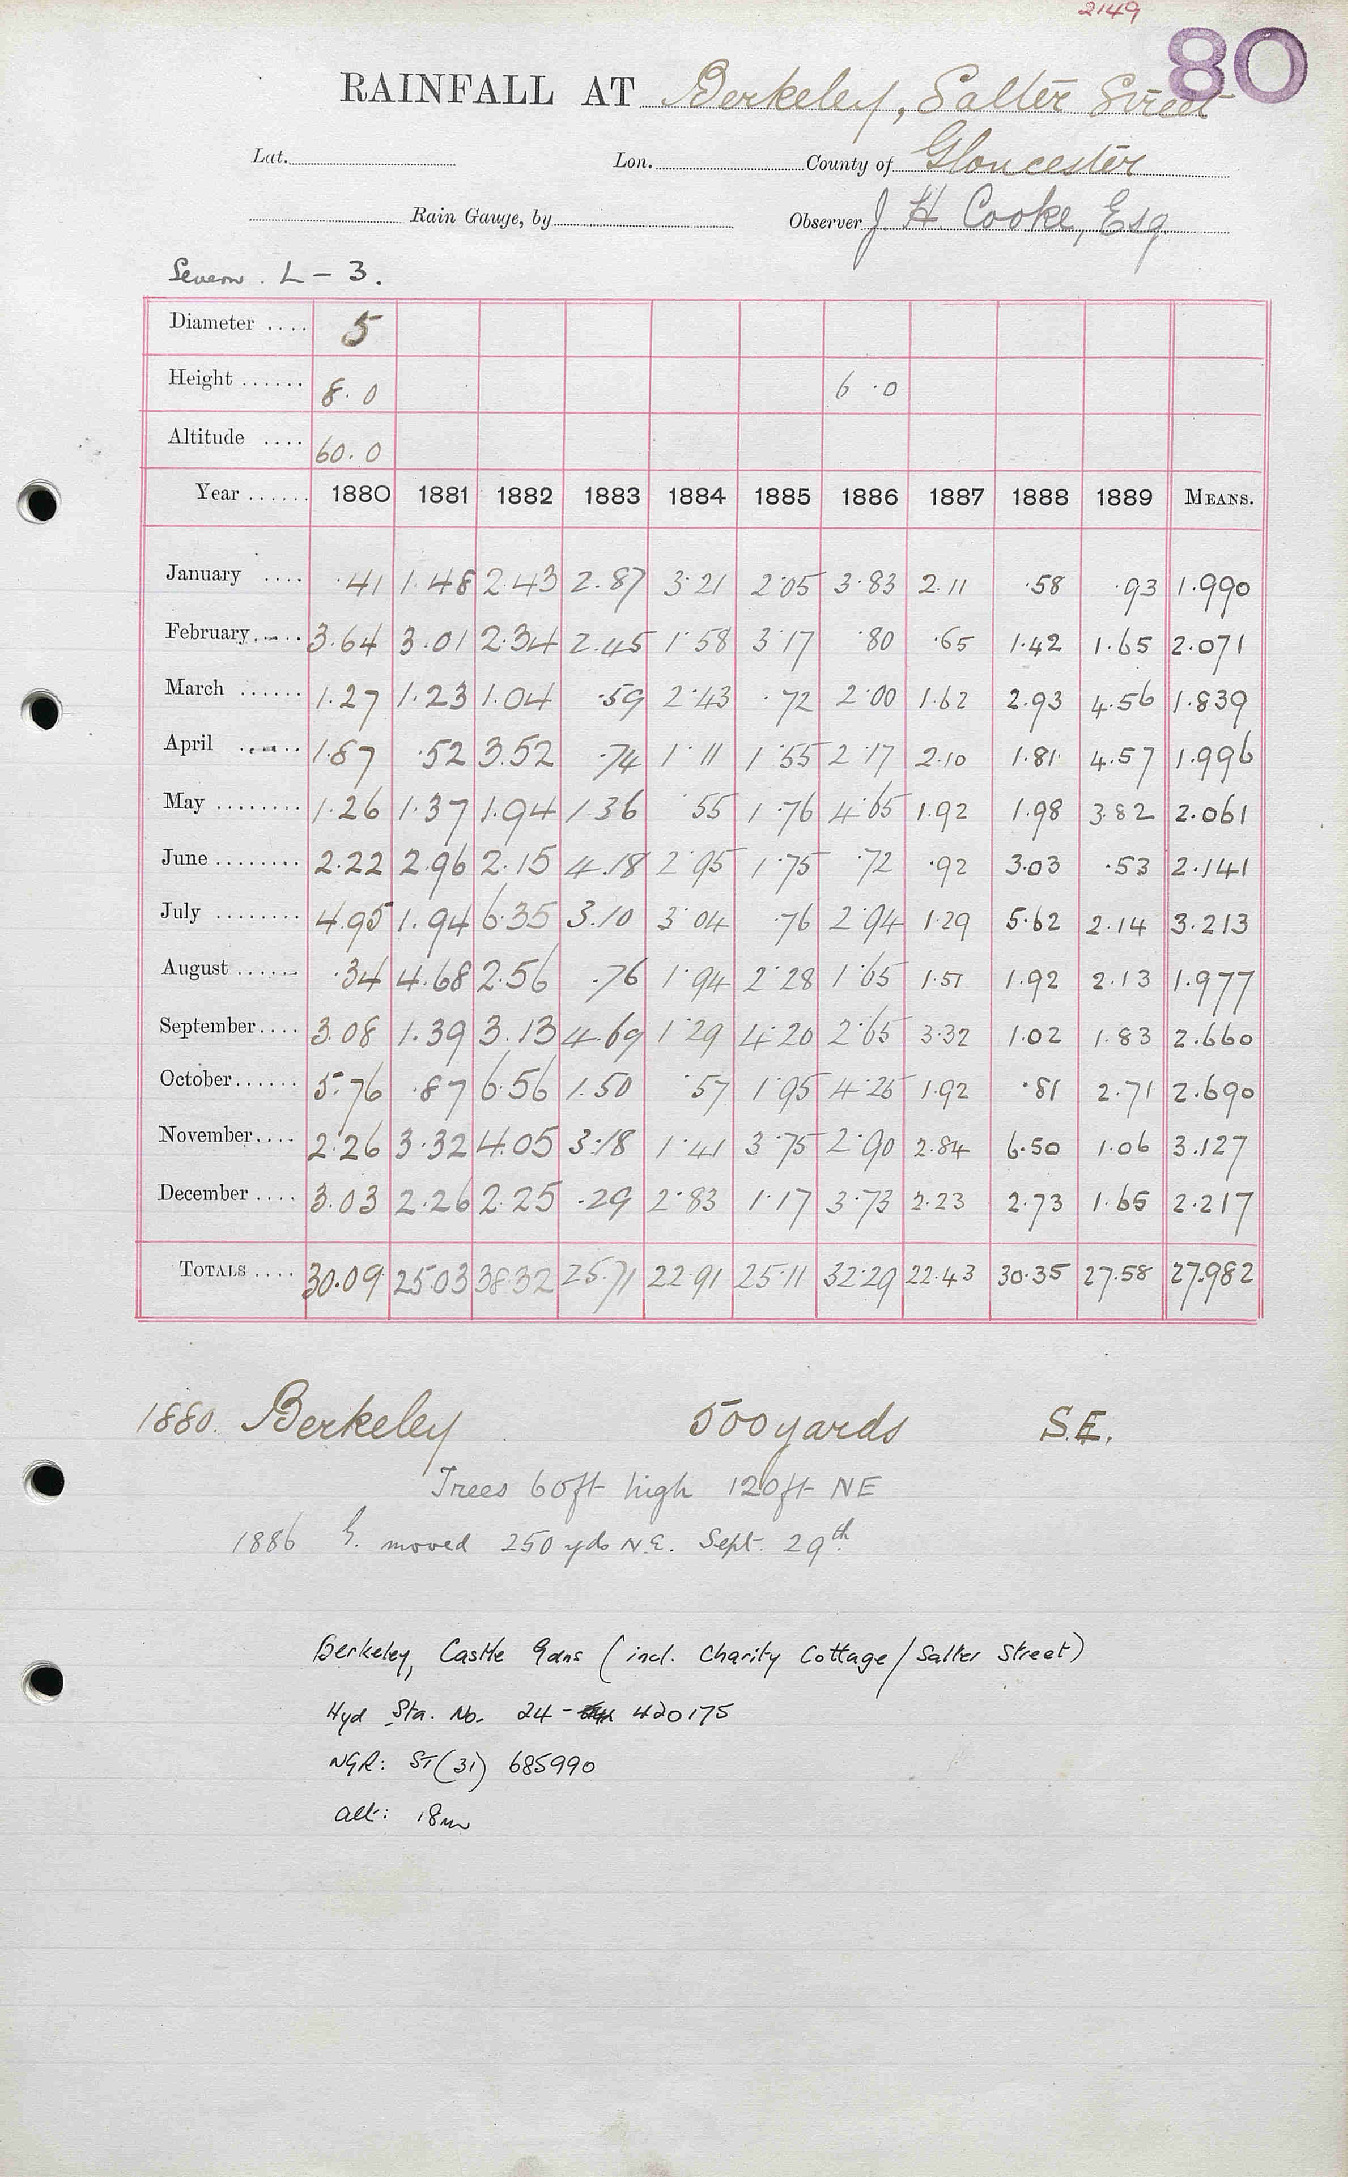 2149
80
RAINFALL AT Berkeley, Salter Street
Lat. Lon. County of Gloucester
Rain Gauge, by Observer J H Cooke, Esq
Severn . L - 3.
Diameter .... 5
Height ...... 8.0 6.0
Altitude .... 60.0
Year ...... 1880 1881 1882 1883 1884 1885 1886 1887 1888 1889 MEANS.
January .... .41 1.48 2.43 2.87 3.21 2.05 3.83 2.11 .58 .93 1.990
February..... 3.64 3.01 2.34 2.45 1.58 3.17 .80 .65 1.42 1.65 2.071
March ...... 1.27 1.23 1.04 .59 2.43 .72 2.00 1.62 2.93 4.56 1.839
April ...... 1.87 .52 3.52 .74 1.11 1.55 2.17 2.10 1.81 4.57 1.996
May ........ 1.26 1.37 1.94 1.36 .55 1.76 4.65 1.92 1.98 3.82 2.061
June ........ 2.22 2.96 2.15 4.18 2.95 1.75 .72 .92 3.03 .53 2.141
July ........ 4.95 1.94 6.35 3.10 3.04 .76 2.94 1.29 5.62 2.14 3.213
August ...... .34 4.68 2.56 .76 1.94 2.28 1.65 1.51 1.92 2.13 1.977
September.... 3.08 1.39 3.13 4.69 1.29 4.20 2.65 3.32 1.02 1.83 2.660
October...... 5.76 .87 6.56 1.50 .57 1.95 4.25 1.92 .81 2.71 2.690
November.... 2.26 3.32 4.05 3.18 1.41 3.75 2.90 2.84 6.50 1.06 3.127
December .... 3.03 2.26 2.25 .29 2.83 1.17 3.73 2.23 2.73 1.65 2.217
TOTALS .... 30.09 25.03 38.32 25.71 22.91 25.11 32.29 22.43 30.35 27.58 27.982
1880. Berkeley 500 yards S.E.
Trees 60ft high 120ft NE
1886 G. moved 250 yds N.E. Sept. 29th
Berkeley, Castle Gdns (incl. Charity Cottage/Salter Street)
Hyd Sta. No. 24 - 420175
NGR: ST(31) 685990
alt: 18m